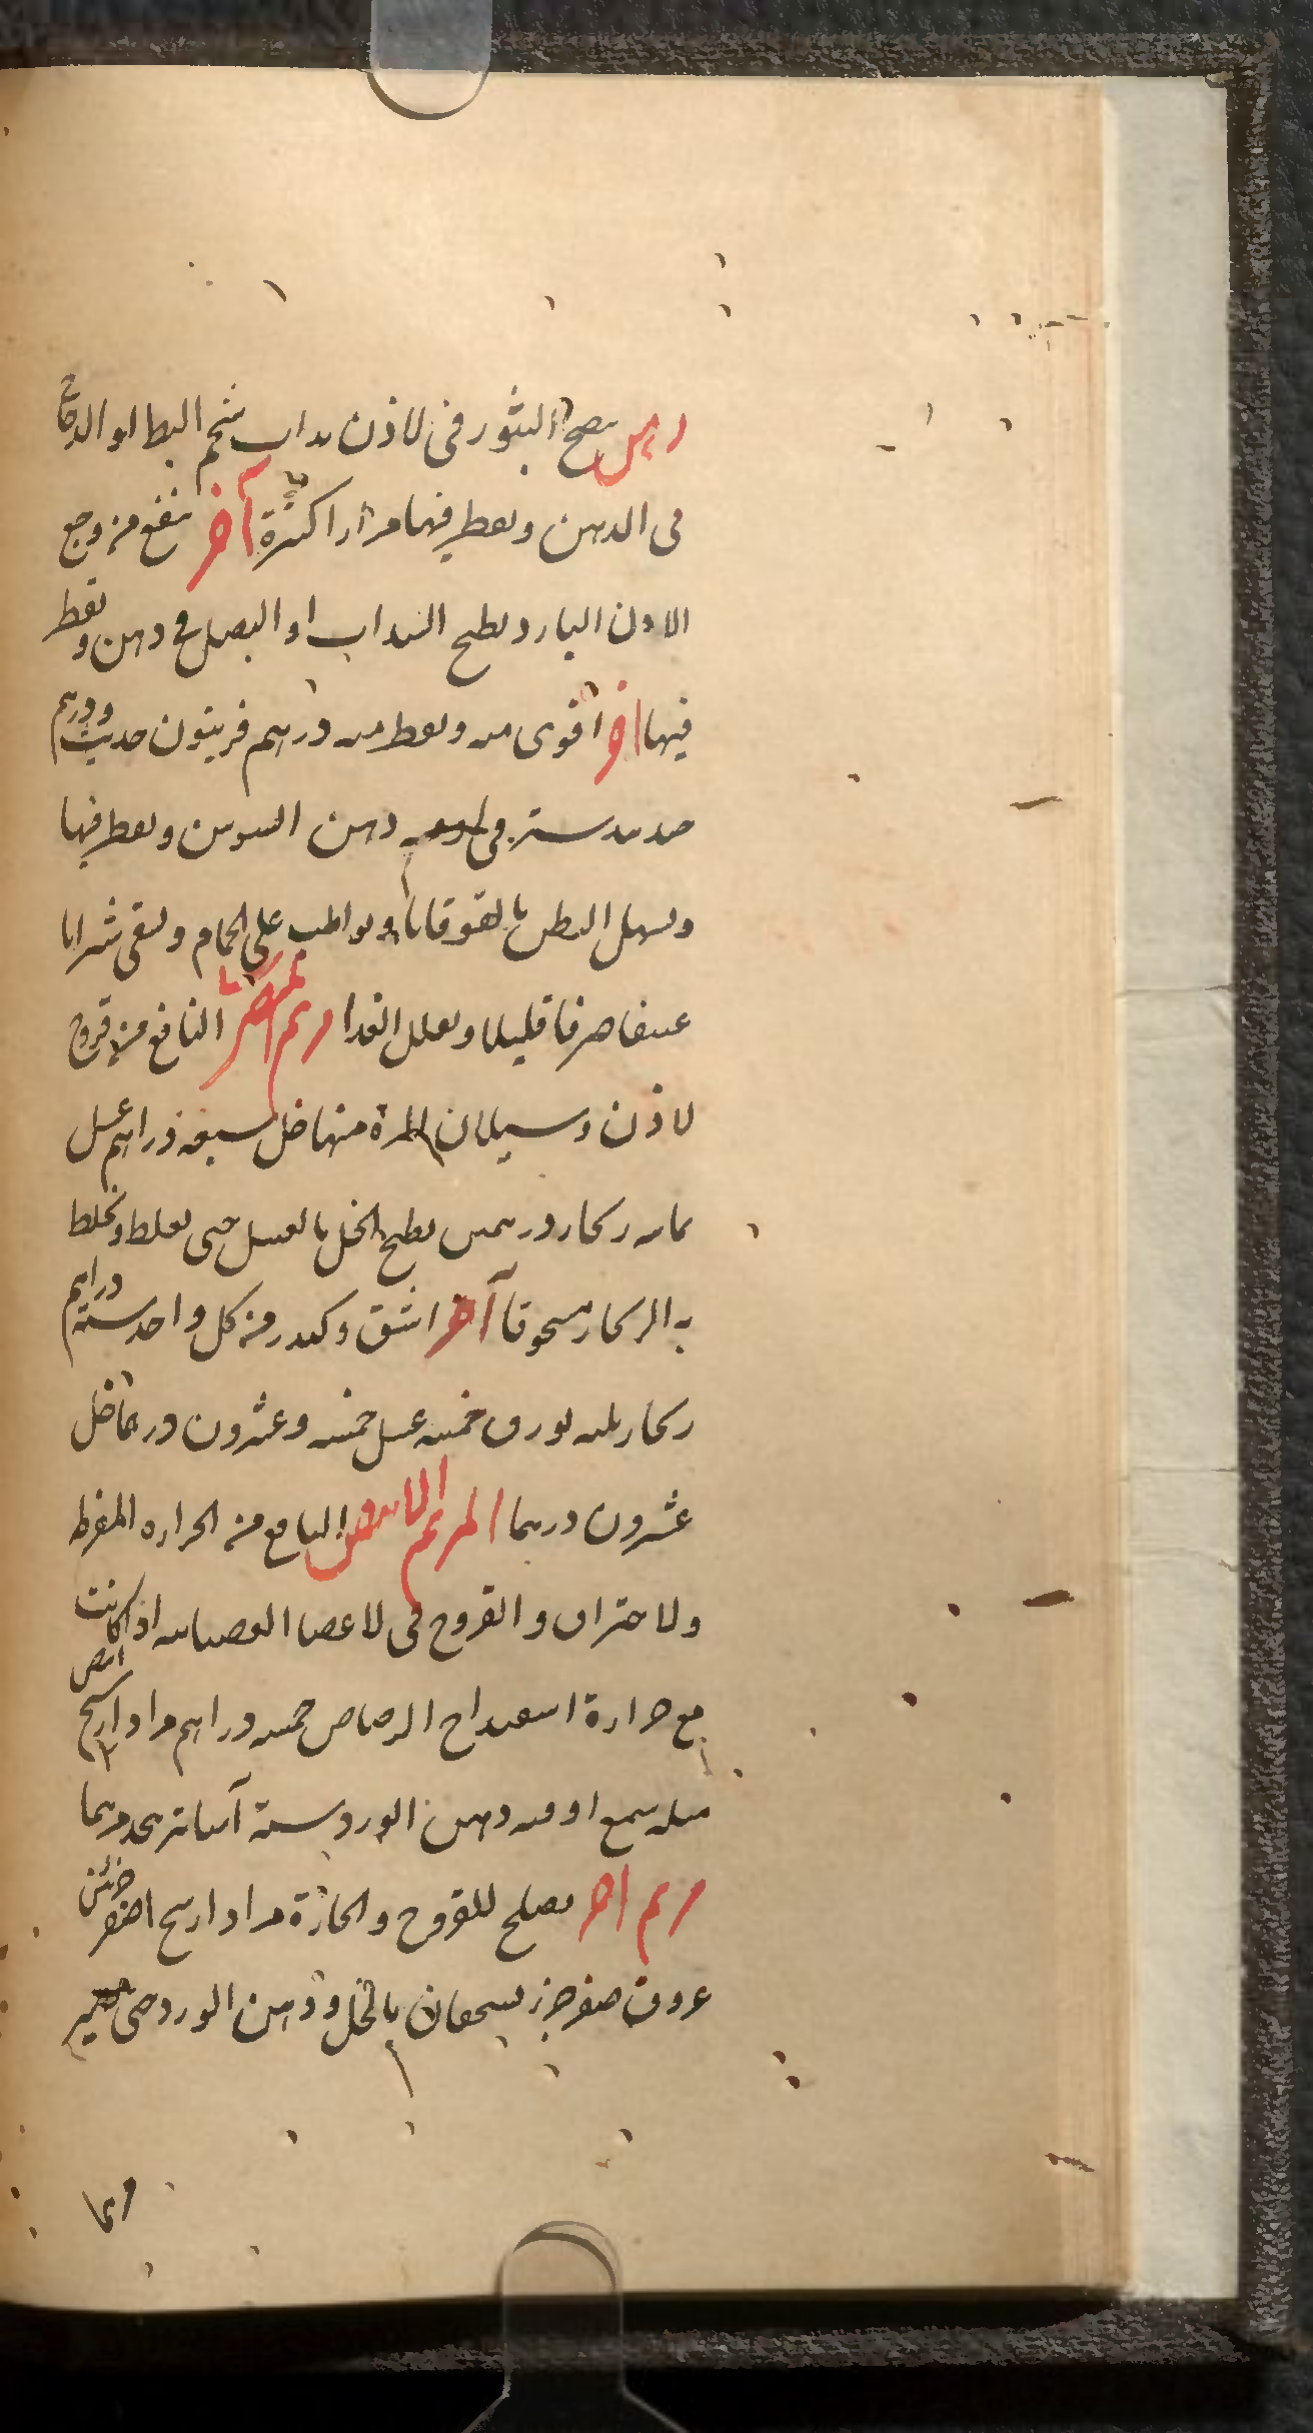 دهن ينضج البثور فى لاذن يذاب شحم البط او الدجاج
فى الدهن ويقطر فيها مرارا كثيرة آخر ينفع من وجع
الاذن البارد يطبخ السداب او البصل فى دهن ويقطر
فيها آخر اقوى منه ويقطر منه درهم فربيون حديث ودرهم
جندبيدستر فى دهن السوسن ويقطر فيها
ويسهل البطن بالقوقايا ويواظب على الحمام ويسقى شرابا
عتيقا صرفا قليلا ويقلل الغذا مرهم النافع من قروح
لاذن وسيلان المدة منها خل سبعة دراهم عسل
ثمانيه زنجار درهمين يطبخ الخل بالعسل حتى يغلظ ويخلط
به الزنجار مسحوقا آخر اشق وكندر من كل واحد ستة دراهم
زنجار ثلثه بورق خمسه عسل خمسه وعشرون درهما خل
عشرون درهما المرهم الابيض النافع من الحراره المفرطه
ولاحتراق والقروح فى لاعضا العصبانيه اذا كانت
مع حرارة اسفيداج الرصاص خمسه دراهم مرداسنج ابيض
مثله شمع اوقيه دهن الورد ستة آساتير يتخذ مرهما
مرهم آخر يصلح للقروح والحارة مرداسنج اصفر جزئين
عروق صفر جزء يسحقان بالخل ودهن الورد حتى يصير
مرهما